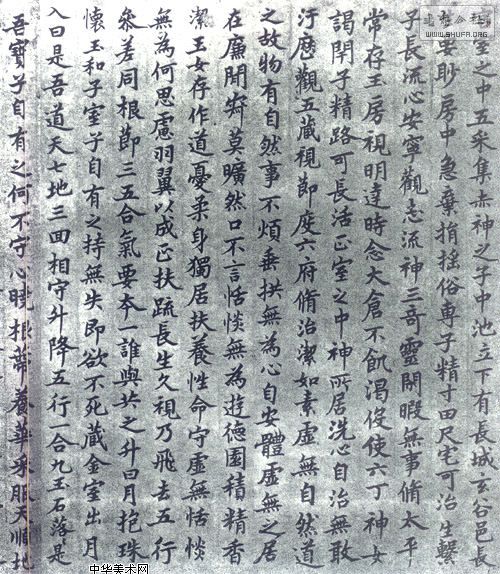 室之中五采集赤神之子中池立下有長城玄谷邑長
生要眇房中急棄捐搖俗專子精寸田尺宅可治生繫
子長流心安寧觀志流神三奇靈閑暇無事脩太平
常存玉房視明達時念大倉不飢渴伇使六丁神女
謁閉子精路可長活正室之中神所居洗心自治無敢
汙歷觀五藏視節度六府脩治潔如素虛無自然道
之故物有自然事不煩垂拱無為心自安體虛無之居
在廉間寂莫曠然口不言恬惔無為遊德園積精香
潔玉女存作道憂柔身獨居扶養性命守虛無恬惔
無為何思慮羽翼以成正扶疏長生久視乃飛去五行
參差同根節三五合氣要本一誰與共之升日月抱珠
懷玉和子室子自有之持無失即欲不死藏金室出月
入日是吾道天七地三回相守升降五行一合九玉石落是
吾寶子自有之何不守心曉根蒂養華采服天順地
WWW.SHUFA.ORG
中华美术网